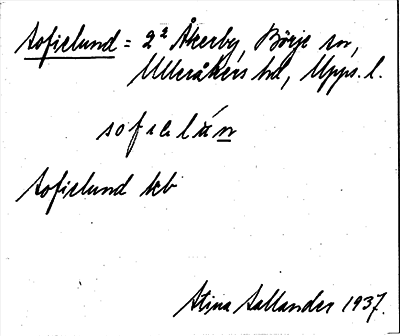 Sofielund = 2² Åkerby, Börje sn,
Ulleråkers hd, Upps. l.
sofɩelún
Sofielund kb
Stina Sallander 1937.